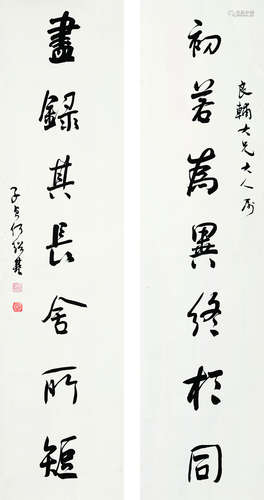 良輔大兄大人屬
初若為異終於同
盡錄其長舍所短
子貞何紹基